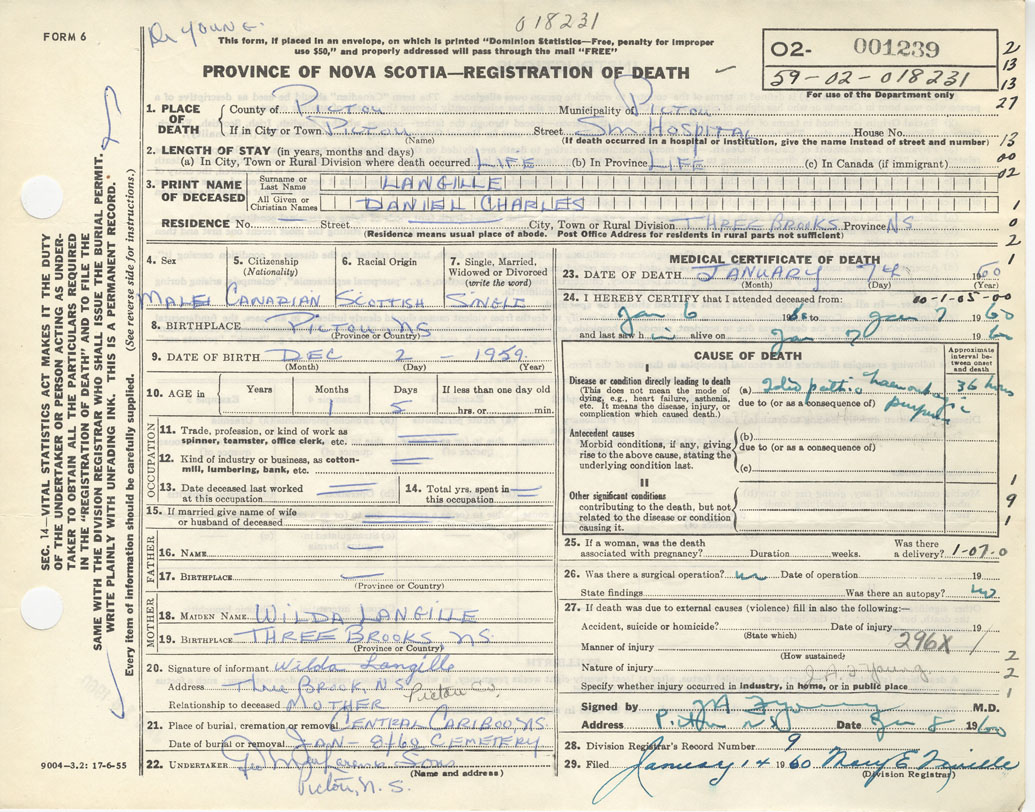 018231
FORM 6
Dr YOUNG.
This form, if placed in an envelope, on which is printed "Dominion Statistics—Free, penalty for improper
use $50," and properly addressed will pass through the mail "FREE"
O2- 001239
59-02-018231
For use of the Department only
2
13
13
27
PROVINCE OF NOVA SCOTIA—REGISTRATION OF DEATH
1. PLACE OF DEATH { County of PICTOU Municipality of PICTOU
If in City or Town PICTOU Street SM HOSPITAL House No.
(Name) (If death occurred in a hospital or institution, give the name instead of street and number)
13
2. LENGTH OF STAY (in years, months and days)
(a) In City, Town or Rural Division where death occurred LIFE (b) In Province LIFE (c) In Canada (if immigrant)
00
02
3. PRINT NAME OF DECEASED { Surname or Last Name LANGILLE
All Given or Christian Names DANIEL CHARLES
1
RESIDENCE No. Street City, Town or Rural Division THREE BROOKS Province NS
(Residence means usual place of abode. Post Office Address for residents in rural parts not sufficient)
0
2
SEC. 14—VITAL STATISTICS ACT MAKES IT THE DUTY
OF THE UNDERTAKER OR PERSON ACTING AS UNDER-
TAKER TO OBTAIN ALL THE PARTICULARS REQUIRED
IN THE "REGISTRATION OF DEATH" AND TO FILE THE
SAME WITH THE DIVISION REGISTRAR WHO SHALL ISSUE THE BURIAL PERMIT.
WRITE PLAINLY WITH UNFADING INK. THIS IS A PERMANENT RECORD.
Every item of information should be carefully supplied. (See reverse side for instructions.)
4. Sex
MALE
5. Citizenship
(Nationality)
CANADIAN
6. Racial Origin
SCOTTISH
7. Single, Married,
Widowed or Divorced
(write the word)
SINGLE
8. BIRTHPLACE PICTOU, NS
(Province or Country)
9. DATE OF BIRTH DEC 2 - 1959.
(Month) (Day) (Year)
10. AGE in Years Months Days If less than one day old
1 5 hrs. or min.
OCCUPATION
11. Trade, profession, or kind of work as
spinner, teamster, office clerk, etc.
12. Kind of industry or business, as cotton-
mill, lumbering, bank, etc.
13. Date deceased last worked
at this occupation
14. Total yrs. spent in
this occupation
15. If married give name of wife
or husband of deceased
FATHER
16. NAME
17. BIRTHPLACE
(Province or Country)
MOTHER
18. MAIDEN NAME WILDA LANGILLE
19. BIRTHPLACE THREE BROOKS NS.
(Province or Country)
20. Signature of informant Wilda Langille
Address THREE BROOK, NS Pictou Co.
Relationship to deceased MOTHER
21. Place of burial, cremation or removal CENTRAL CARIBOO NS.
Date of burial or removal JAN - 8/60 CEMETERY
22. UNDERTAKER Sons
(Name and address)
Pictou, N. S.
9004-3.2: 17-6-55
MEDICAL CERTIFICATE OF DEATH
1
23. DATE OF DEATH JANUARY 7th 1960
(Month) (Day) (Year)
24. I HEREBY CERTIFY that I attended deceased from: 00-1-05-00
Jan 6 1960 to Jan 7 1960
and last saw h im alive on Jan 7 1960
CAUSE OF DEATH
Approximate
interval be-
tween onset
and death
I
Disease or condition directly leading to death
(This does not mean the mode of
dying, e.g., heart failure, asthenia,
etc. It means the disease, injury, or
complication which caused death.)
(a) Idiopathic haemorrhagic 36 hours
due to (or as a consequence of) purpura
Antecedent causes
Morbid conditions, if any, giving
rise to the above cause, stating the
underlying condition last.
(b)
due to (or as a consequence of)
(c)
II
Other significant conditions
contributing to the death, but not
related to the disease or condition
causing it.
1
9
1
25. If a woman, was the death
associated with pregnancy? Duration weeks.
Was there
a delivery? 1-07-0
26. Was there a surgical operation? no Date of operation 19
State findings Was there an autopsy? no
27. If death was due to external causes (violence) fill in also the following:—
Accident, suicide or homicide? Date of injury 19
(State which)
Manner of injury 296X
(How sustained)
1
2
Nature of injury J.A.F. Young
2
Specify whether injury occurred in industry, in home, or in public place
1
Signed by J A F Young M.D.
Address Pictou NS Date Jan 8 1960
28. Division Registrar's Record Number 9
29. Filed January 14 1960 Mary E
(Division Registrar)